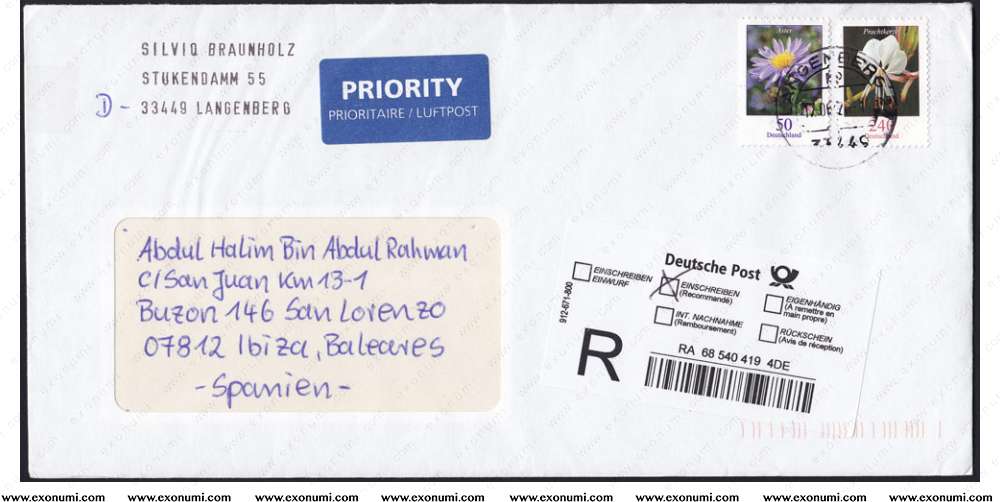 SILVIO BRAUNHOLZ
STUKENDAMM 55
D - 33449 LANGENBERG
PRIORITY
PRIORITAIRE / LUFTPOST
Aster
50
Deutschland
Prachtkerze
240
Deutschland
LANGENBERG
Abdul Halim Bin Abdul Rahman
C/San Juan Km 13-1
Buzon 146 San Lorenzo
07812 Ibiza, Baleares
- Spanien -
Deutsche Post
912-671-800
EINSCHREIBEN
EINWURF
EINSCHREIBEN
(Recommandé)
EIGENHÄNDIG
(A remettre en
main propre)
INT. NACHNAHME
(Remboursement)
RÜCKSCHEIN
(Avis de réception)
R
RA 68 540 419 4DE
www.exonumi.com www.exonumi.com www.exonumi.com www.exonumi.com www.exonumi.com www.exonumi.com www.exonumi.com www.exonumi.com